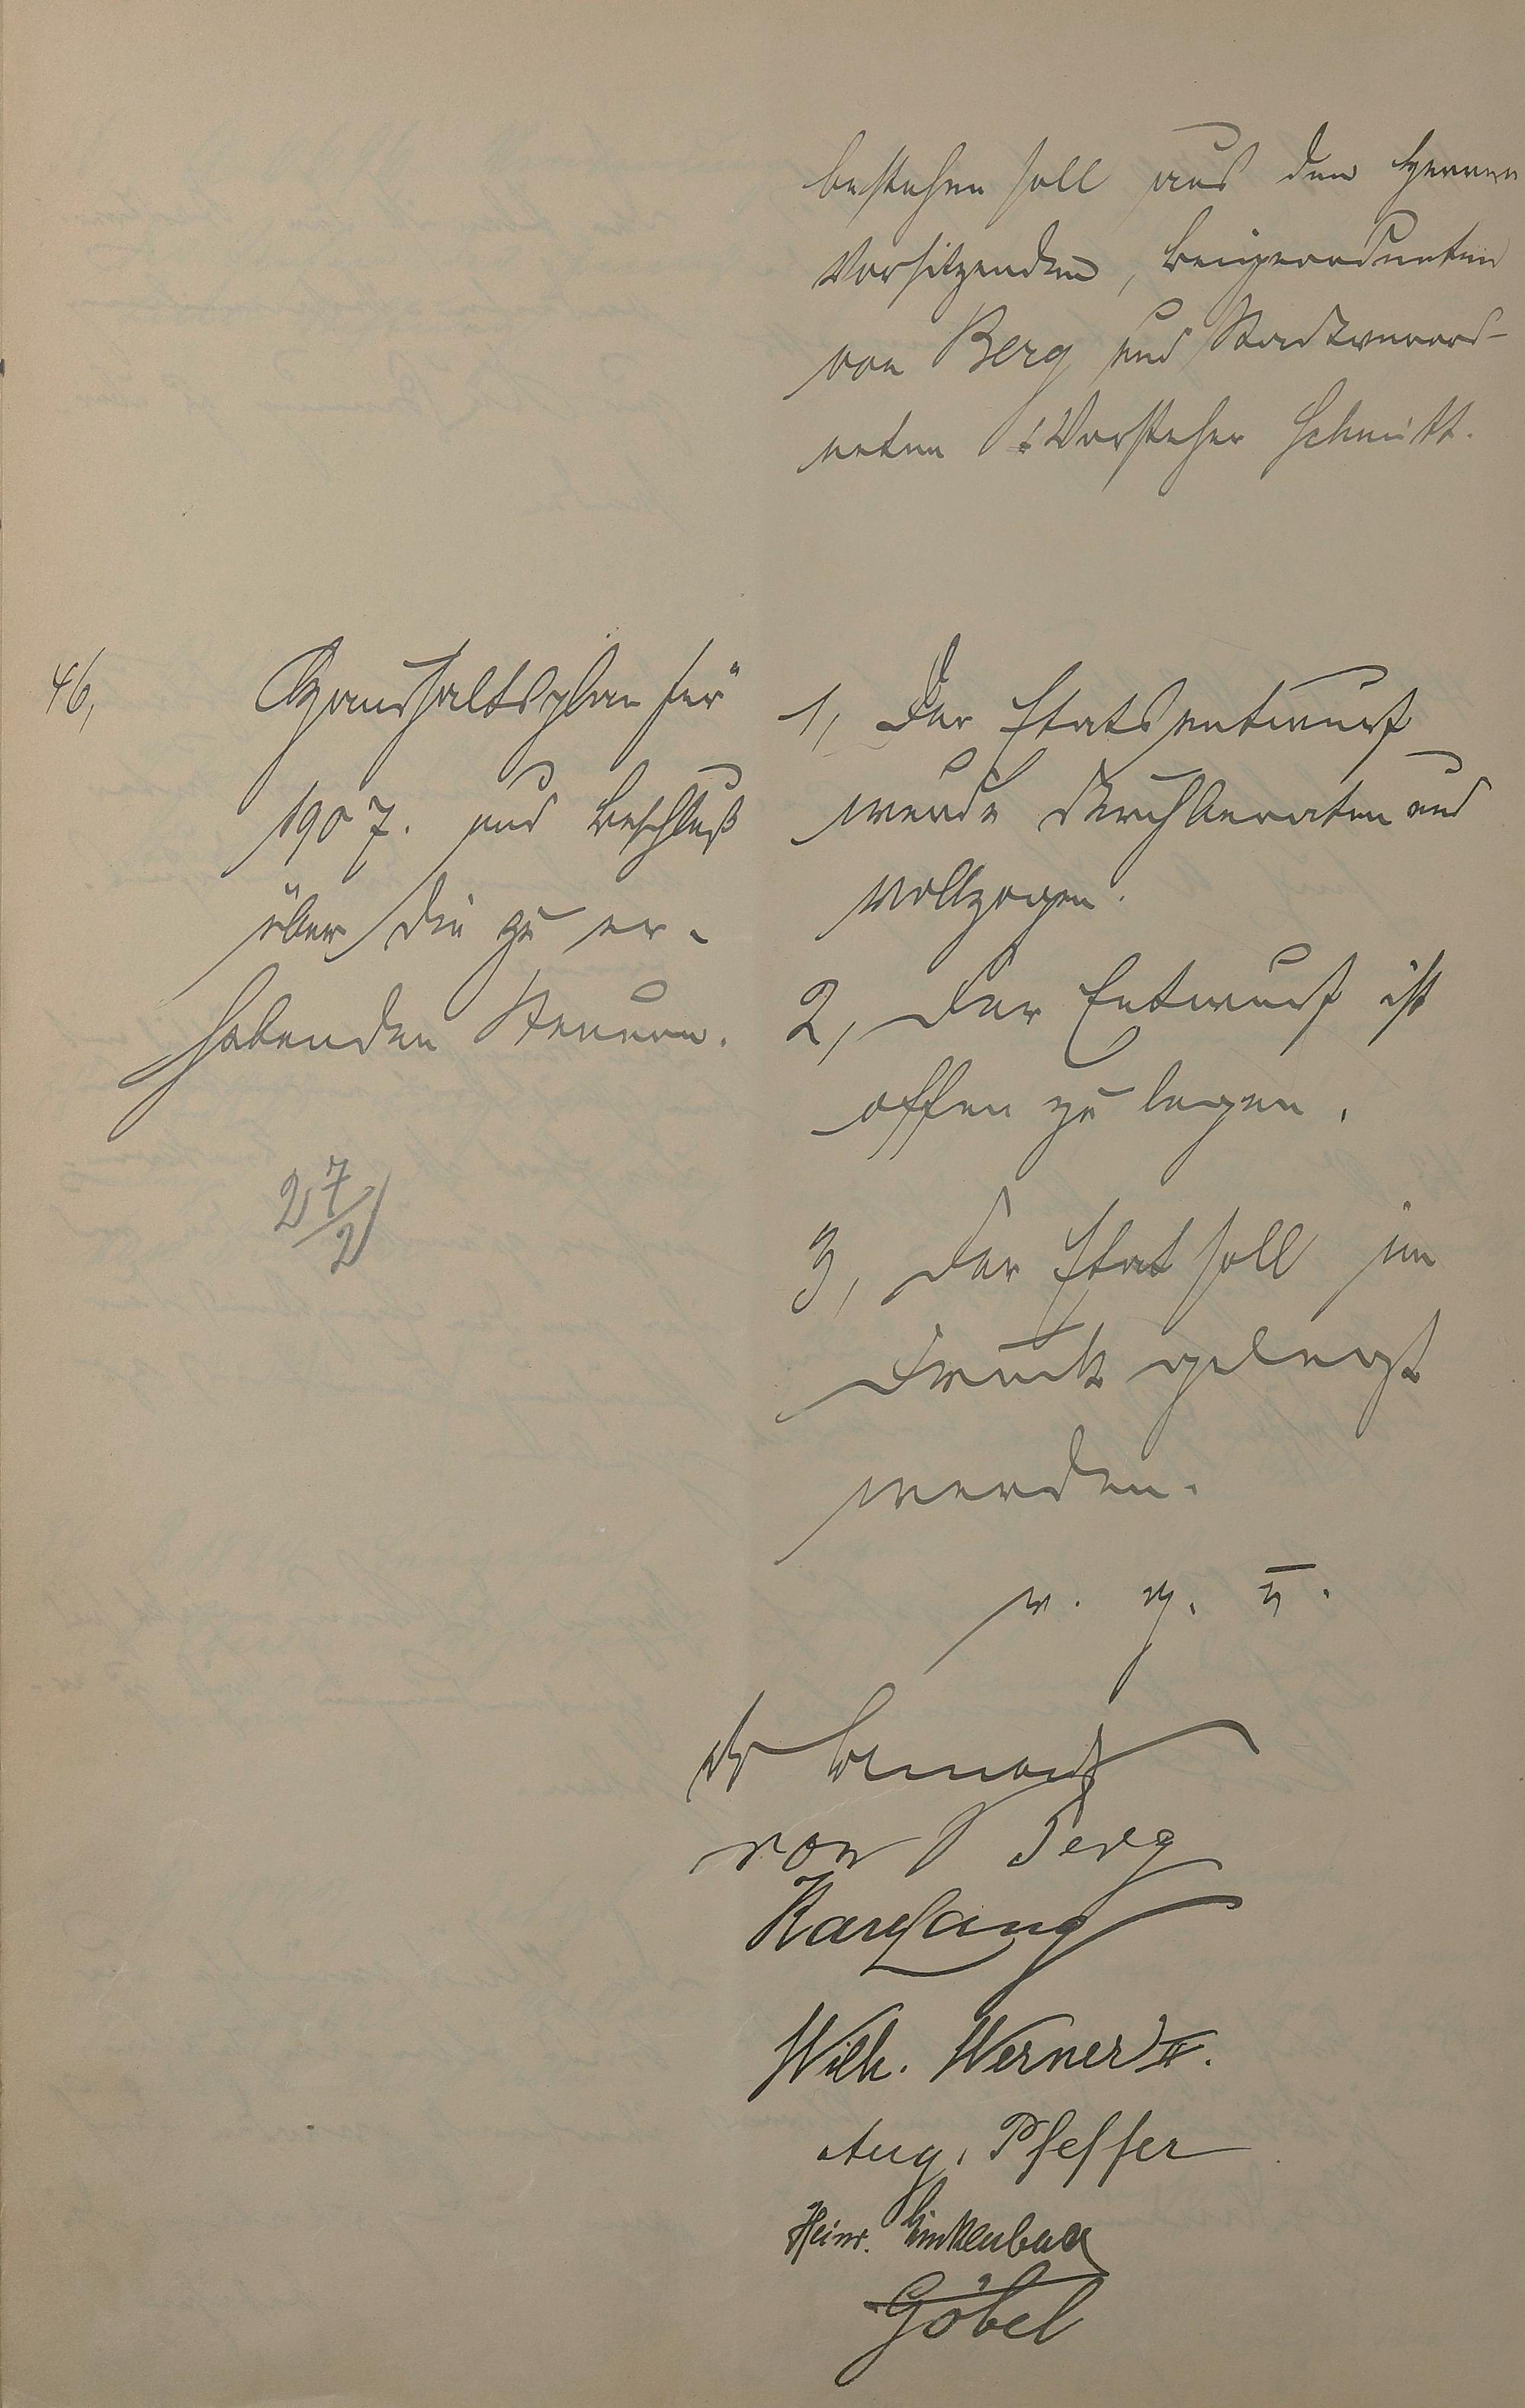 bestehen soll aus den Herren
Vorsitzenden, Beigeordneten
von Berg und Stadtverord-
neten-Vorsteher Schmitt.
46,
Haushaltsplan für
1907. und Beschluß
über die zu er-
hebenden Steuern.
27/2
1, Der Etatsentwurf
wurde durchberaten und
vollzogen.
2, Der Entwurf ist
offen zu legen.
3, Der Etat soll im
Druck gelegt
werden.
v. g. u.
von Berg
Karl Lang
Wilh. Werner II.
Aug. Pfeffer
Heinr. Linkenbach
Göbel